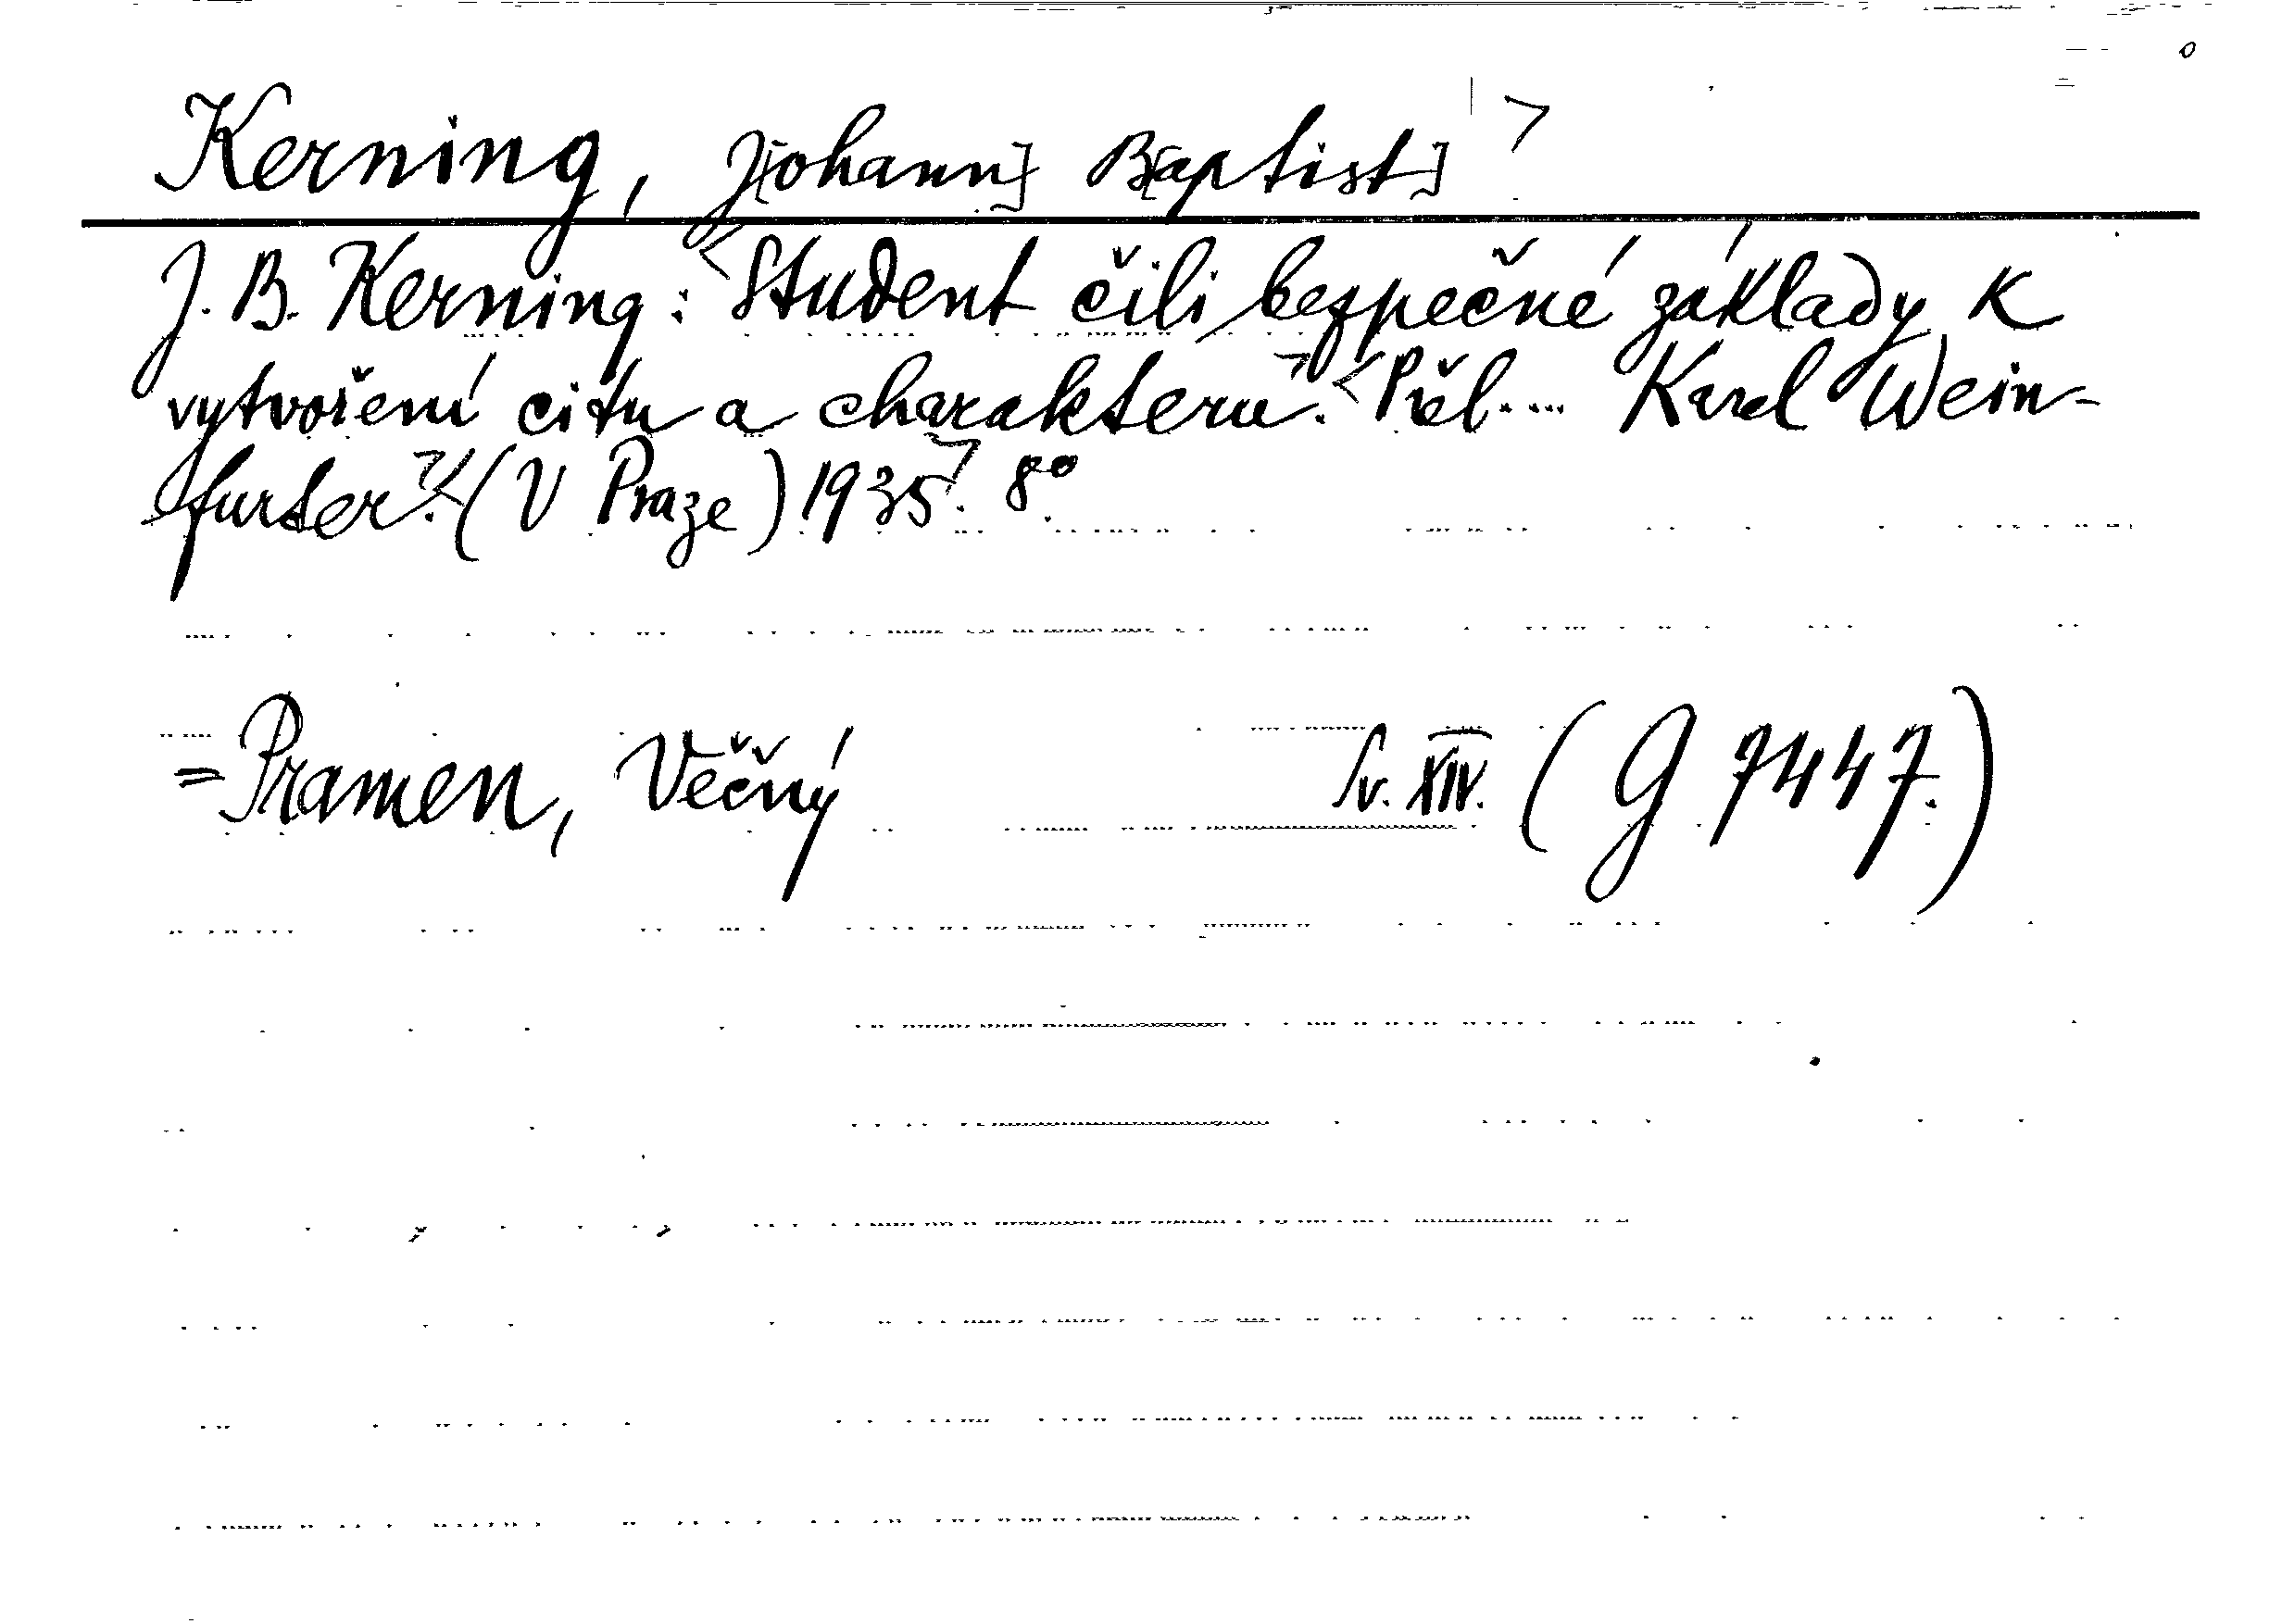 Kerning, J[ohann] B[aptist]
J. B. Kerning: Student čili bezpečné základy k
vytvoření citu a charakteru. Přel.... Karel Wein-
furter. (V Praze) 1935. 8°.
=Pramen, Věčný Sv. XIV. (G 7447.)